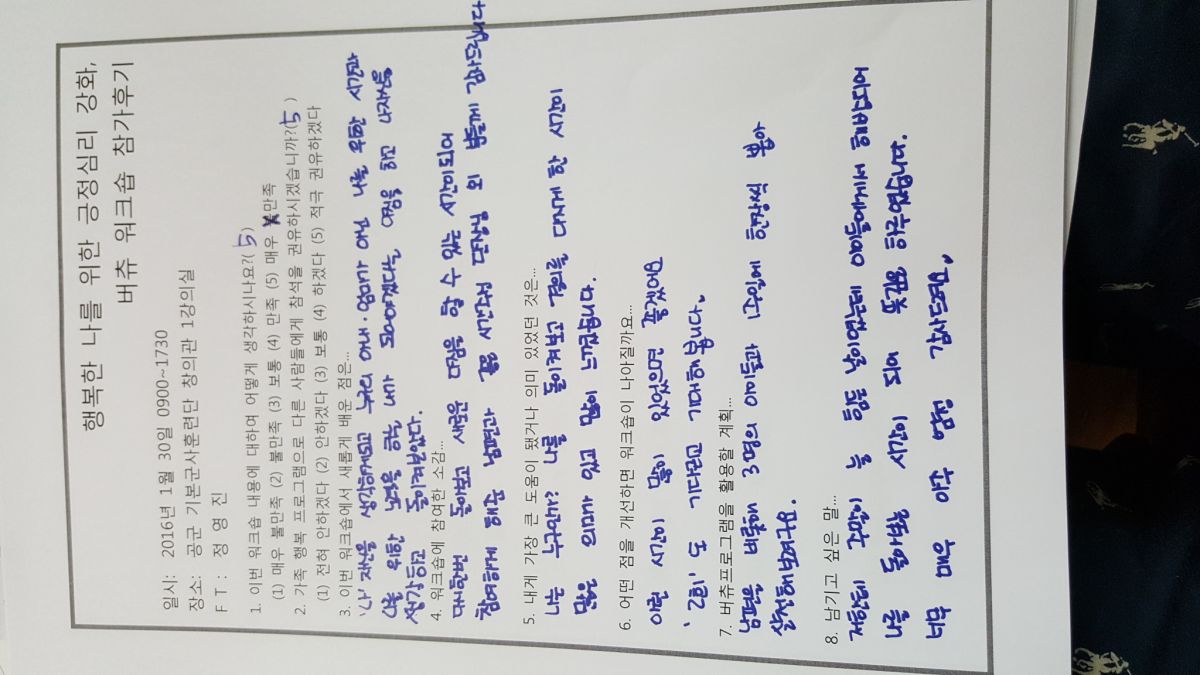 행복한 나를 위한 긍정심리 강화,
버츄 워크숍 참가후기
일시: 2016년 1월 30일 0900~1730
장소: 공군 기본군사훈련단 창의관 1강의실
F T : 정 영 진
1. 이번 워크숍 내용에 대하여 어떻게 생각하시나요?( 5 )
(1) 매우 불만족 (2) 불만족 (3) 보통 (4) 만족 (5) 매우 만족
2. 가족 행복 프로그램으로 다른 사람들에게 참석을 권유하시겠습니까?( 5 )
(1) 전혀 안하겠다 (2) 안하겠다 (3) 보통 (4) 하겠다 (5) 적극 권유하겠다
3. 이번 워크숍에서 새롭게 배운 점은...
'나' 자신을 생각하게되고 누구의 아내·엄마가 아닌 나를 위한 시간과
나를 위한 노력을 하는 내가 되어야겠다는 다짐을 하고 나자신을
생각하고 돌이켜보았다.
4. 워크숍에 참여한 소감...
다시한번 돌아보고 새로운 다짐을 할 수 있는 시간이되어
참여하게 해준 남편과 좋은 시간되신 단장님 외 분들께 감사드립니다
5. 내게 가장 큰 도움이 됐거나 의미 있었던 것은...
나는 누구인가? 나를 돌이켜보고 결의를 다지게 한 시간이
많은 의미가 있고 많이 느꼈습니다.
6. 어떤 점을 개선하면 워크숍이 나아질까요...
이런 시간이 많이 있었으면 좋겠어요
'2회' 도 기다리고 기대해봅니다.
7. 버츄프로그램을 활용할 계획...
남편을 비롯해 3명의 아이들과 1주일에 한장씩 뽑아
실천해보려구요.
8. 남기고 싶은 말...
저한테 주말이 늘 힘든 날이었는데 아이들에게서 해방되어
나를 돌아보는 시간이 되어 좋은 하루였습니다.
너무 매우 아주 엄청 감사드려요.